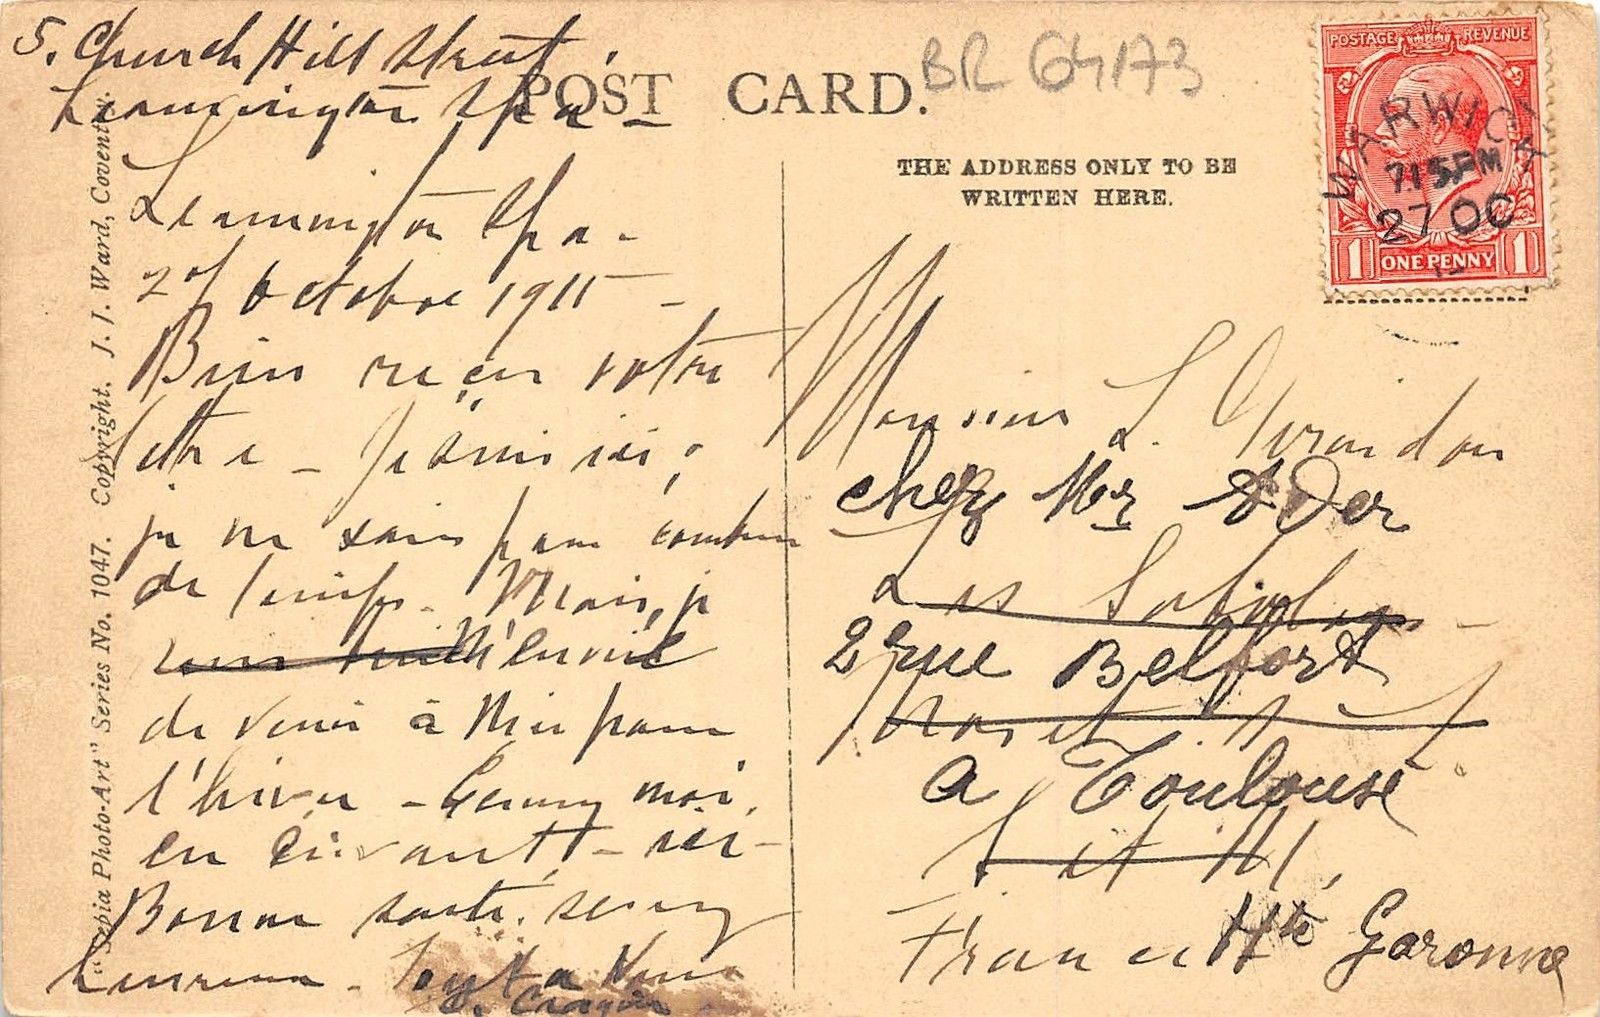 5. Church Hill Street,
Leamington Spa
POST CARD.
BR 64173
THE ADDRESS ONLY TO BE
WRITTEN HERE.
POSTAGE REVENUE
WARWICK
7.15 PM
27 OC
15
1 ONE PENNY 1
"Sepia Photo-Art" Series No. 1047. Copyright. J. J. Ward, Coventry.
Leamington Spa -
27 Octobre 1915 -
Bien reçu votre
lettre - Je suis ici ;
je ne sais pour combien
de temps - Mais, je
m'ennuie
de venir à Nice pour
l'hiver - moi,
en écrivant, ici -
Bonne santé. soyez
heureux - Tout à Vous
Monsieur L. Girondon
chez Mr Ader
Les
2 rue Belfort
a Toulouse
et M,
France Hte Garonne